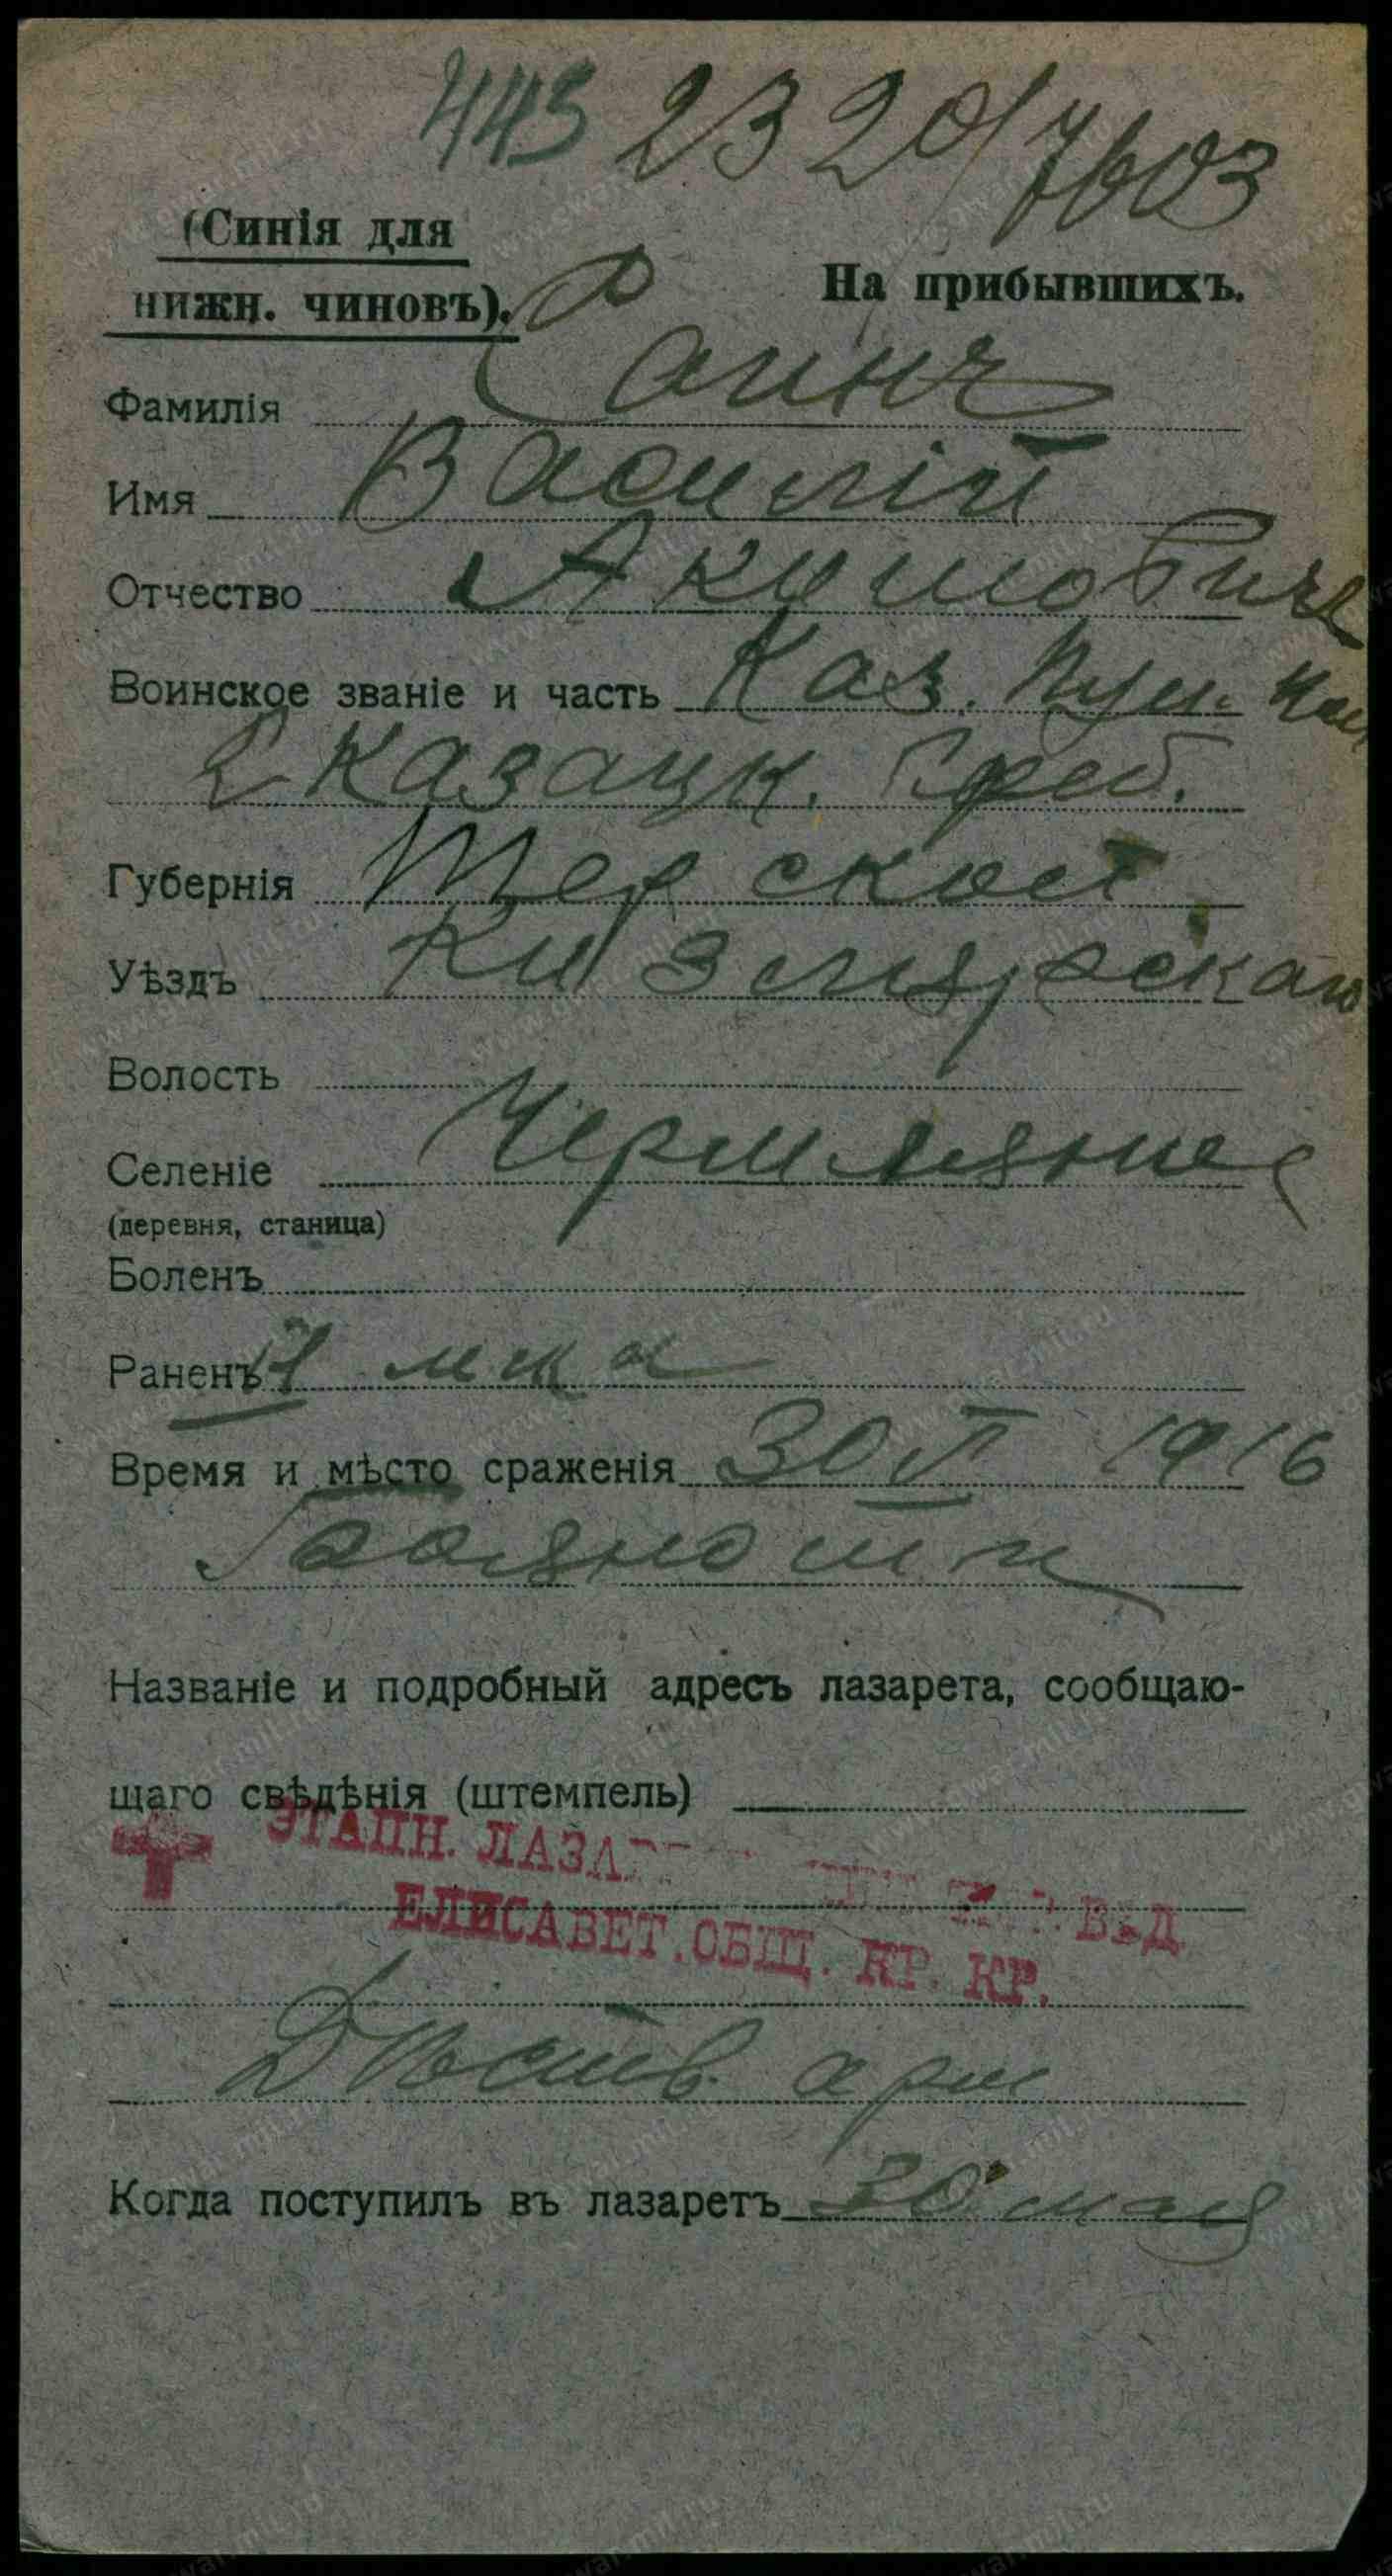 443 2320/7603
(Синія для
нижн. чиновъ).
На прибывшихъ.
Фамилія
Имя Василій
Отчество Акимовичъ
Воинское званіе и часть Каз. Пул. Ком
2 Казацк. Греб.
Губернія Терской
Уѣздъ Кизлярскаго
Волость
Селеніе
(деревня, станица)
Боленъ
Раненъ
Время и мѣсто сраженія 30 V 1916
Названіе и подробный адресъ лазарета, сообщаю-
щаго свѣдѣнія (штемпель)
ЭТАПН. ЛАЗА ВѢД.
ЕЛИСАВЕТ. ОБЩ. КР. КР.
Дѣйств. арм
Когда поступилъ въ лазаретъ 30 мая